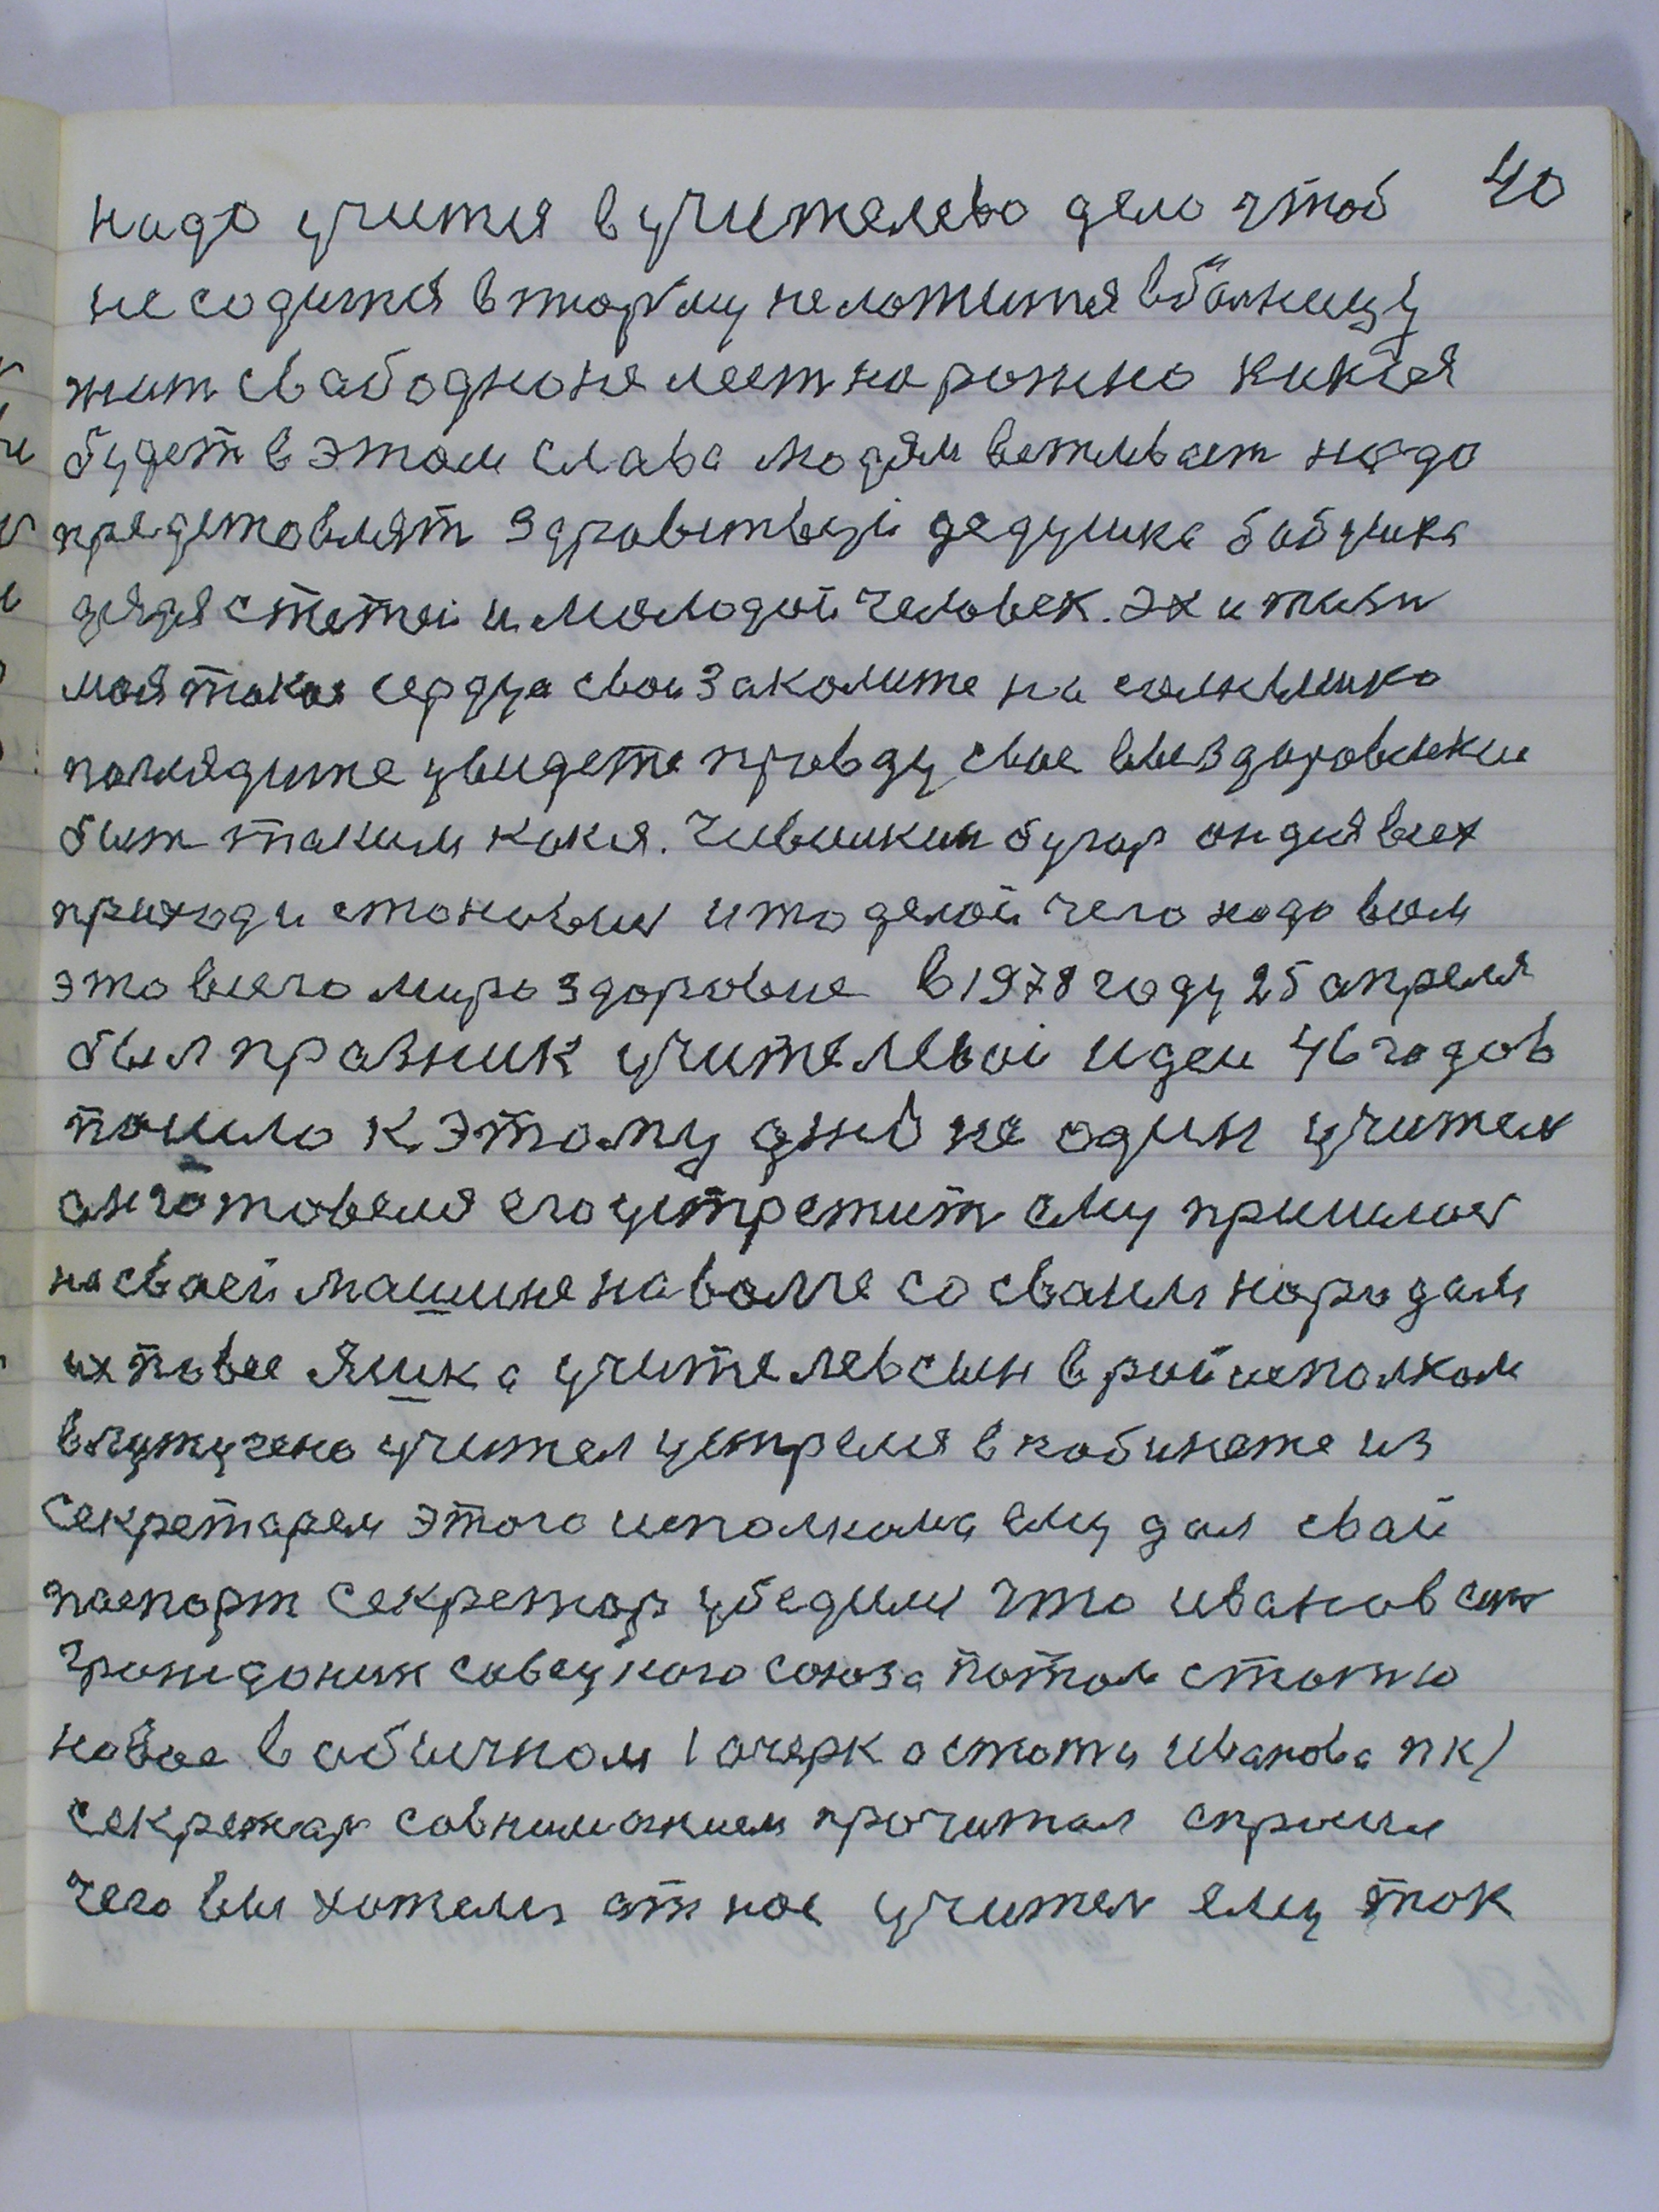 40
надо учитця в учителево дело чтоб
не содитця в тюрму не ложитця в болницу
жит свабодно не лест на рожно какая
будет в этом слава людям вежлваст надо
предтовлят здравствуй дедушка бабушка
дядя с тетей и молодой человек. эх и жизн
моя такая сердца свои заколите на солнышко
поглядите увидете правду свое выздоровление
быт таким как я. Чивилкин бугор он для всех
приходи становис и то делой чего надо вам
это всего мира здоровие в 1978 году 25 апреля
был празник учителевой идеи 46 годов
пошло к этому дню не один учител
он готовелся его устретит ему пришлос
на своей машине на волге со сваим народам
их повес Яшка учителев сын в райисполком
в лутугено учител устрелся в кабинете из
Секретарем этого исполкома ему дал свай
паспорт Секретар убедилс что иванов сын
гражданин савецкого союза потом статю
новое в обычном (очерк о статы иванова пк)
секретар совниманием прочитал спросил
чего вы хотелы от нас учител ему так